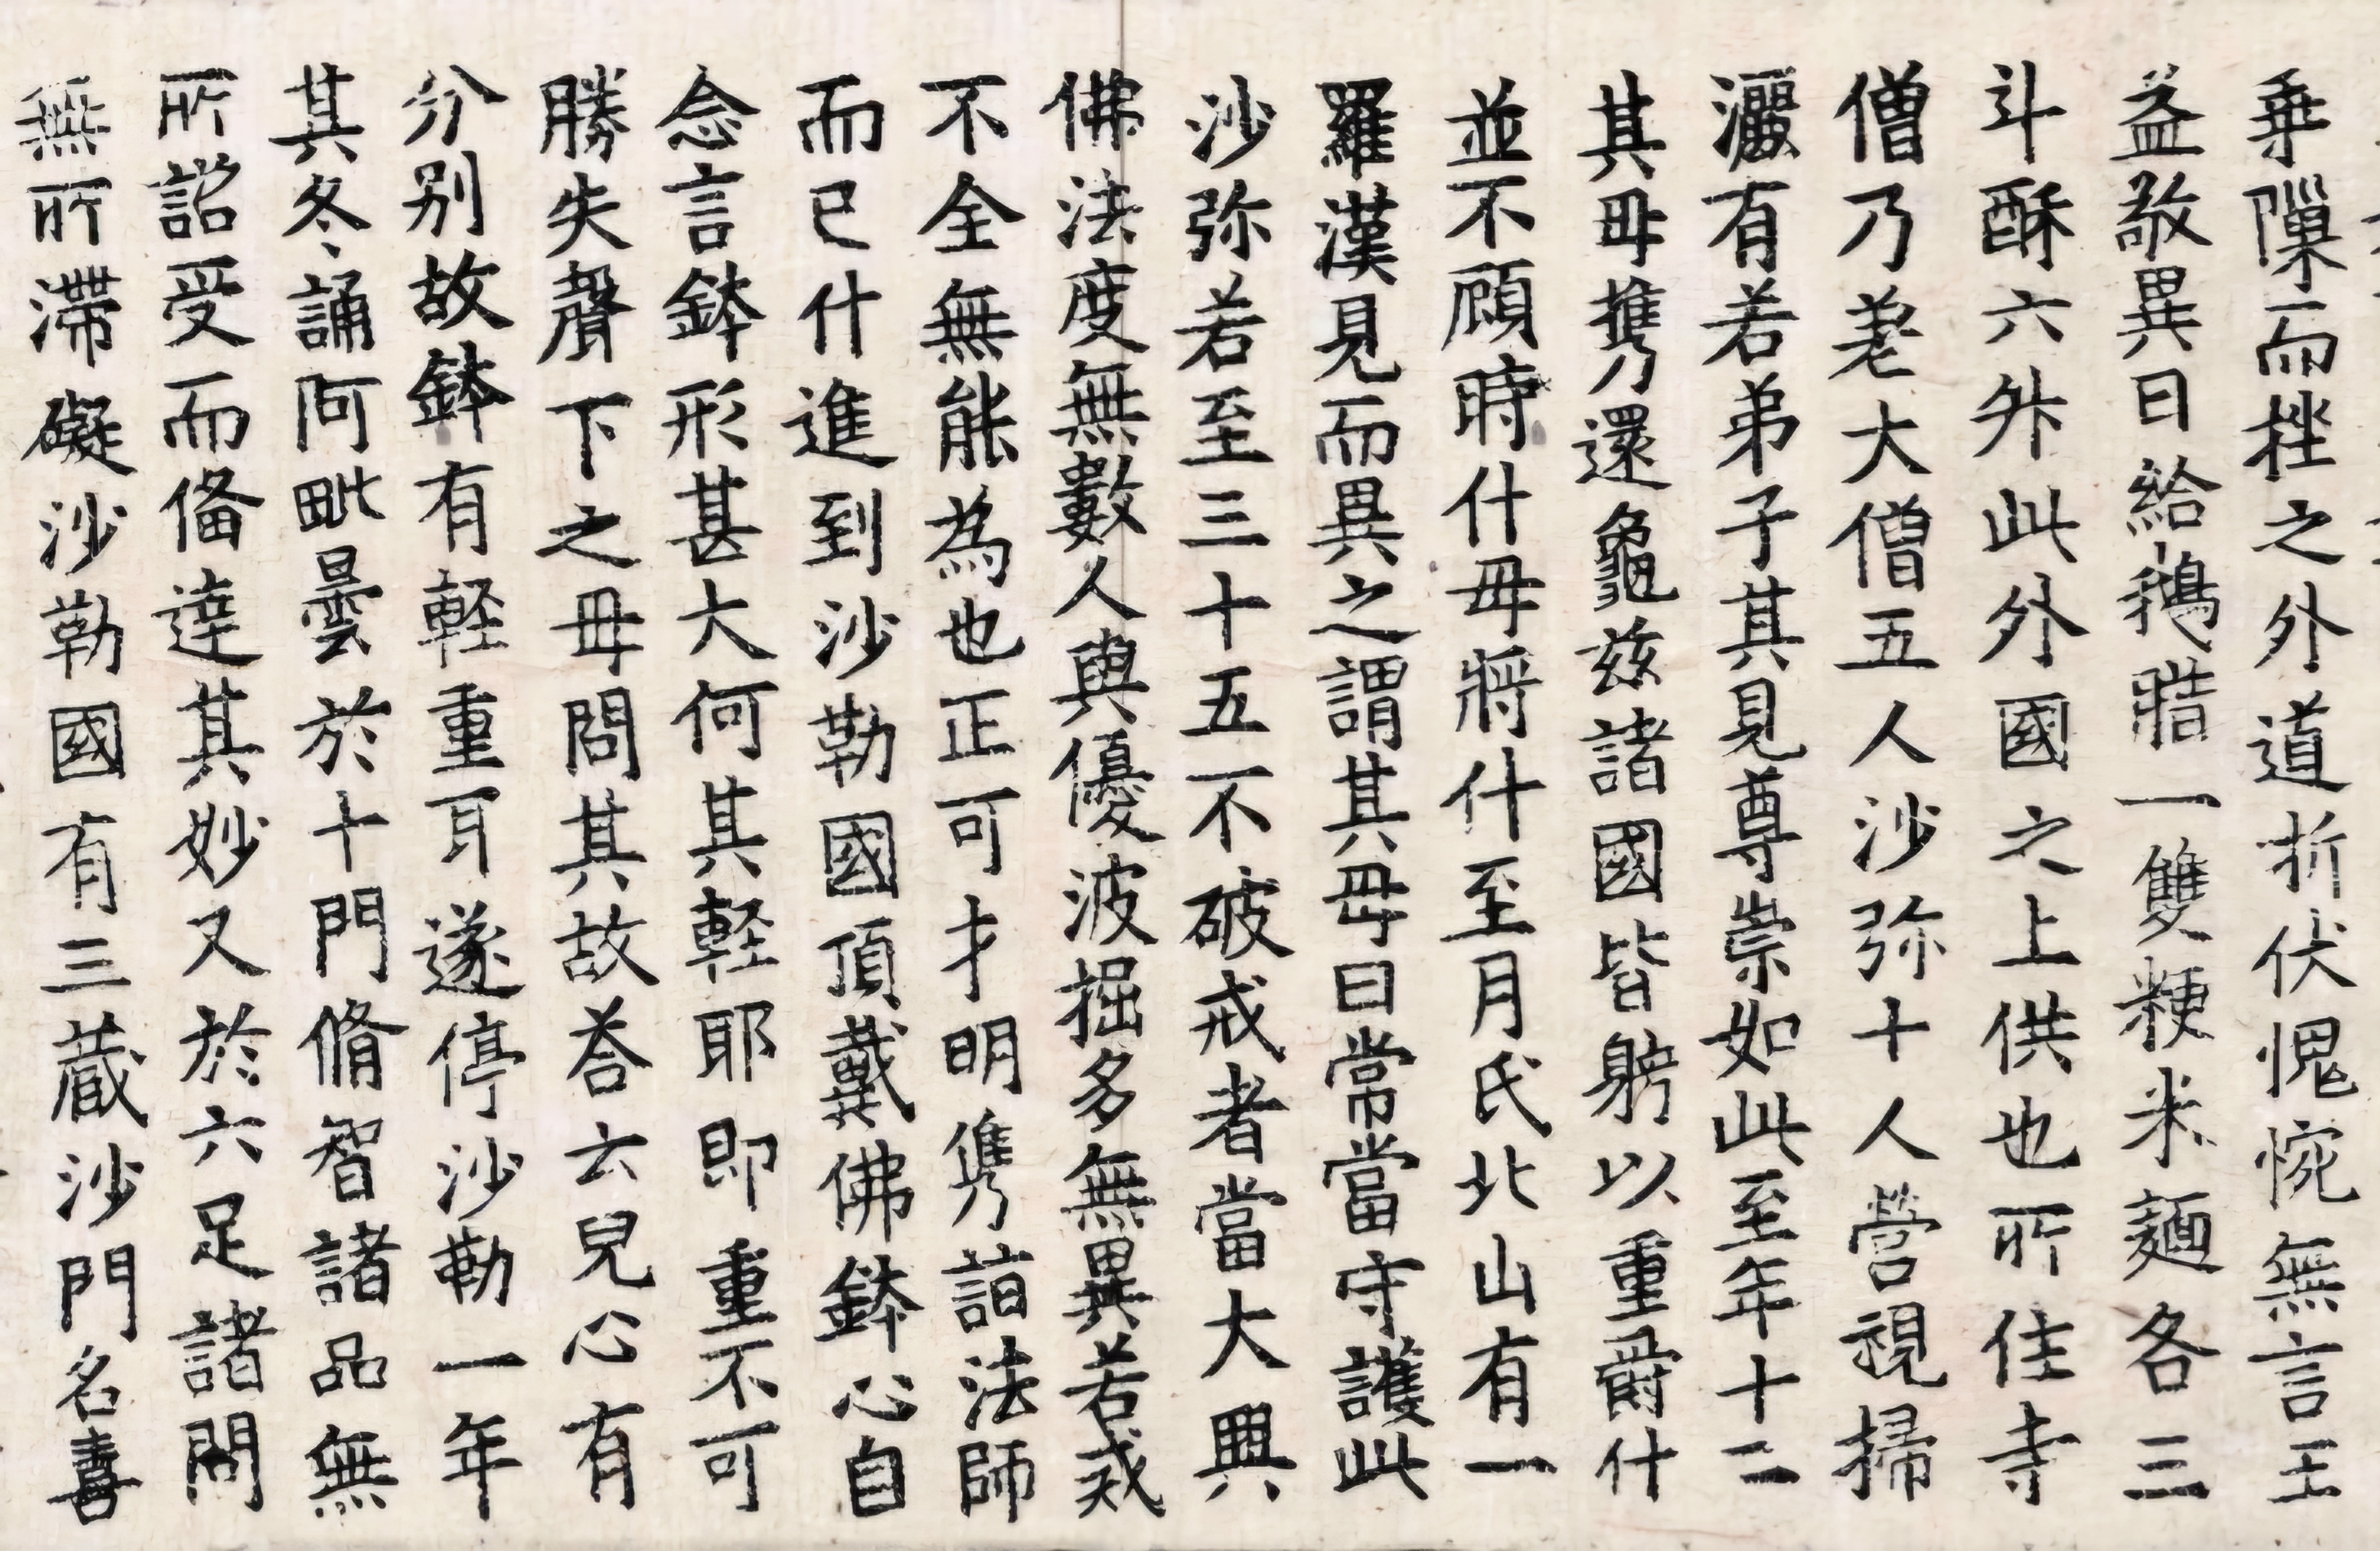 乗隟而挫之外道折伏愧惋無言王
益敬異日給鵝腊一雙粳米麺各三
斗酥六升此外國之上供也所住寺
僧乃差大僧五人沙弥十人營視掃
灑有若弟子其見尊崇如此至年十二
其母携還龜茲諸國皆躬以重爵什
並不顧時什母將什至月氏北山有一
羅漢見而異之謂其母曰常當守護此
沙弥若至三十五不破戒者當大興
佛法度無數人與優波掘多無異若戒
不全無能為也正可才明俊詣法師
而已什進到沙勒國頂戴佛鉢心自
念言鉢形甚大何其軽耶即重不可
勝失聲下之母問其故荅云兒心有
分別故鉢有軽重耳遂停沙勒一年
其冬誦阿毗曇於十門脩智諸品無
所諮受而俻達其妙又於六足諸問
無所滯礙沙勒國有三藏沙門名喜